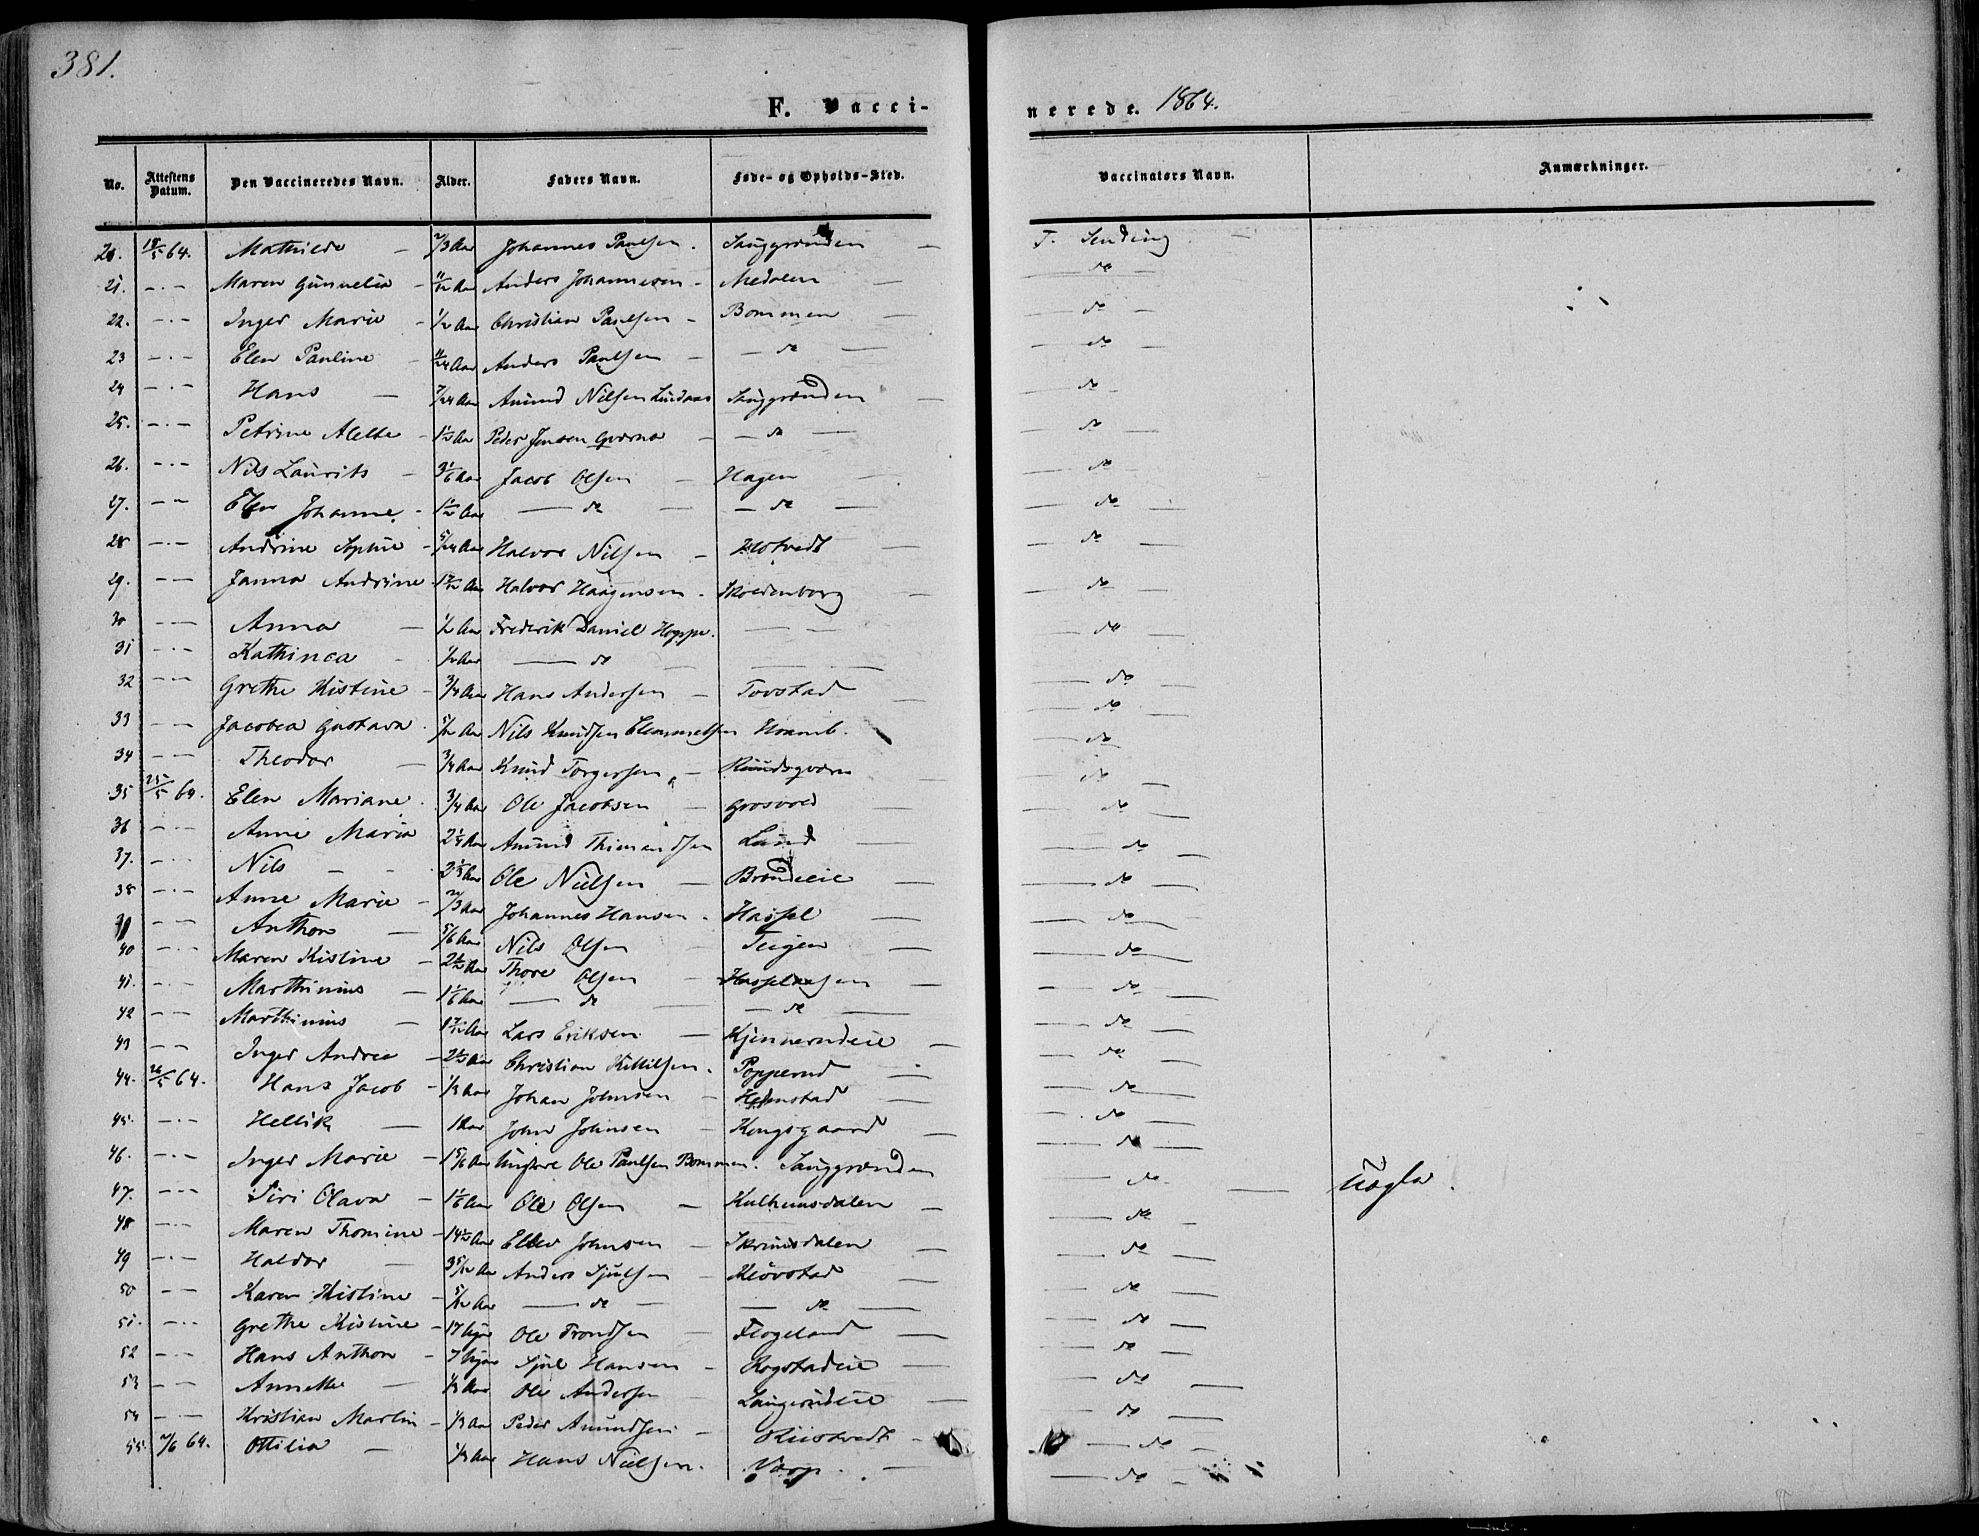 381.
F. Vacci-
nerede. 1864.
No. Attestens Datum. Den Vaccineredes Navn. Alder. Faders Navn. Føde- og Opholds-Sted. Vaccinators Navn. Anmærkninger.
20. 18/5 64. Mathilde — 2/3 Aar Johannes Paulsen. Sauggrenden — T. Sending —
21. — Maren Gunnelia — 11/12 Aar Anders Johannesen — Medalen — do —
22. — Inger Marie — 1/2 Aar Christian Paulsen — Bommen — do —
23 — Elen Pauline — 11/24 Aar Anders Paulsen — do — do —
24 — Hans — 7/24 Aar Amund Nilsen Lindaas Sauggrenden — do —
25. — Petrine Alette — 1 1/2 Aar Peder Jensen Qværna — do — do —
26. — Nils Laurits — 3 1/6 Aar Jacob Olsen — Hagen — do —
27. — Elen Johanne — 1 1/2 Aar — do — do — do —
28 — Andrine Sophie — 5/24 Aar Halvor Nilsen — Hotvedt — do —
29. — Janna Andrine 1 7/12 Aar Halvor Haagensen — Skoldenborg — do —
30 — Anna — 1/2 Aar Frederik Daniel Hoppe. — do —
31 — Kathinca — 1/2 Aar — do — do —
32 — Grethe Kistine — 3/4 Aar Hans Andersen — Tovstad — do —
33 — Jacobea Gustava 5/12 Aar Nils Knudsen Clemmetsen Hvamb. do —
34 — Theodor — 3/4 Aar Knud Torgersen — Ruudsqværn — do —
35 25/5 64. Elen Mariane. 3/4 Aar Ole Jacobsen — Grosvold — do —
36 — Anne Maria 2 1/4 Aar Amund Thimandsen Lund — do —
37. — Nils — 2 1/3 Aar Ole Nielsen — Brøndeeie — do —
38 — Anne Marie — 2/3 Aar Johannes Hansen — Hassel — do —
— Anthon — 5/6 Aar Nils Olsen — Teigen — do —
40 — Maren Kistine — 2 1/2 Aar Thore Olsen — do —
41. — Marthinius — 1 1/6 Aar — do — do — do —
42 — Marthinius — 1 7/12 Aar Lars Eriksen — Kjennerudeie — do —
43 — Inger Andrea — 2 1/2 Aar Christian Kittilsen — Popperud — do —
44. 26/5 64. Hans Jacob — 1/3 Aar Johan Johnsen — Hedenstad — do —
45. — Hellik — 1 Aar John Johnsen — Kongsgaard — do —
46. — Inger Marie — 1 5/6 Aar Ungkarl Ole Paulsen Bommen. Sauggrenden — do — uægte.
47. — Siri Olava — 1 1/6 Aar Ole Olsen — Kulhuusdalen — do —
48 — Maren Thomine — 14 1/2 Aar Ellev Johnsen — Skrimsdalen — do —
49 — Haldor — 3 5/12 Aar Anders Sjulsen — Kløvstad — do —
50 — Karen Kistine — 5/12 Aar — do — do — do —
51. — Grethe Kistine — 17 Uger Ole Trondsen — Flogeland — do —
52 — Hans Anthon — 7 Uger Sjul Hansen — Rogstadeie — do —
53 — Annette — 1/3 Aar Ole Andersen — Langerudeie — do —
54 — Kristian Martin — 1/3 Aar Peder Amundsen — Riistvedt — do —
55. 2/6 64. Ottilia — 1/3 Aar Hans Nielsen. Varp. — do —